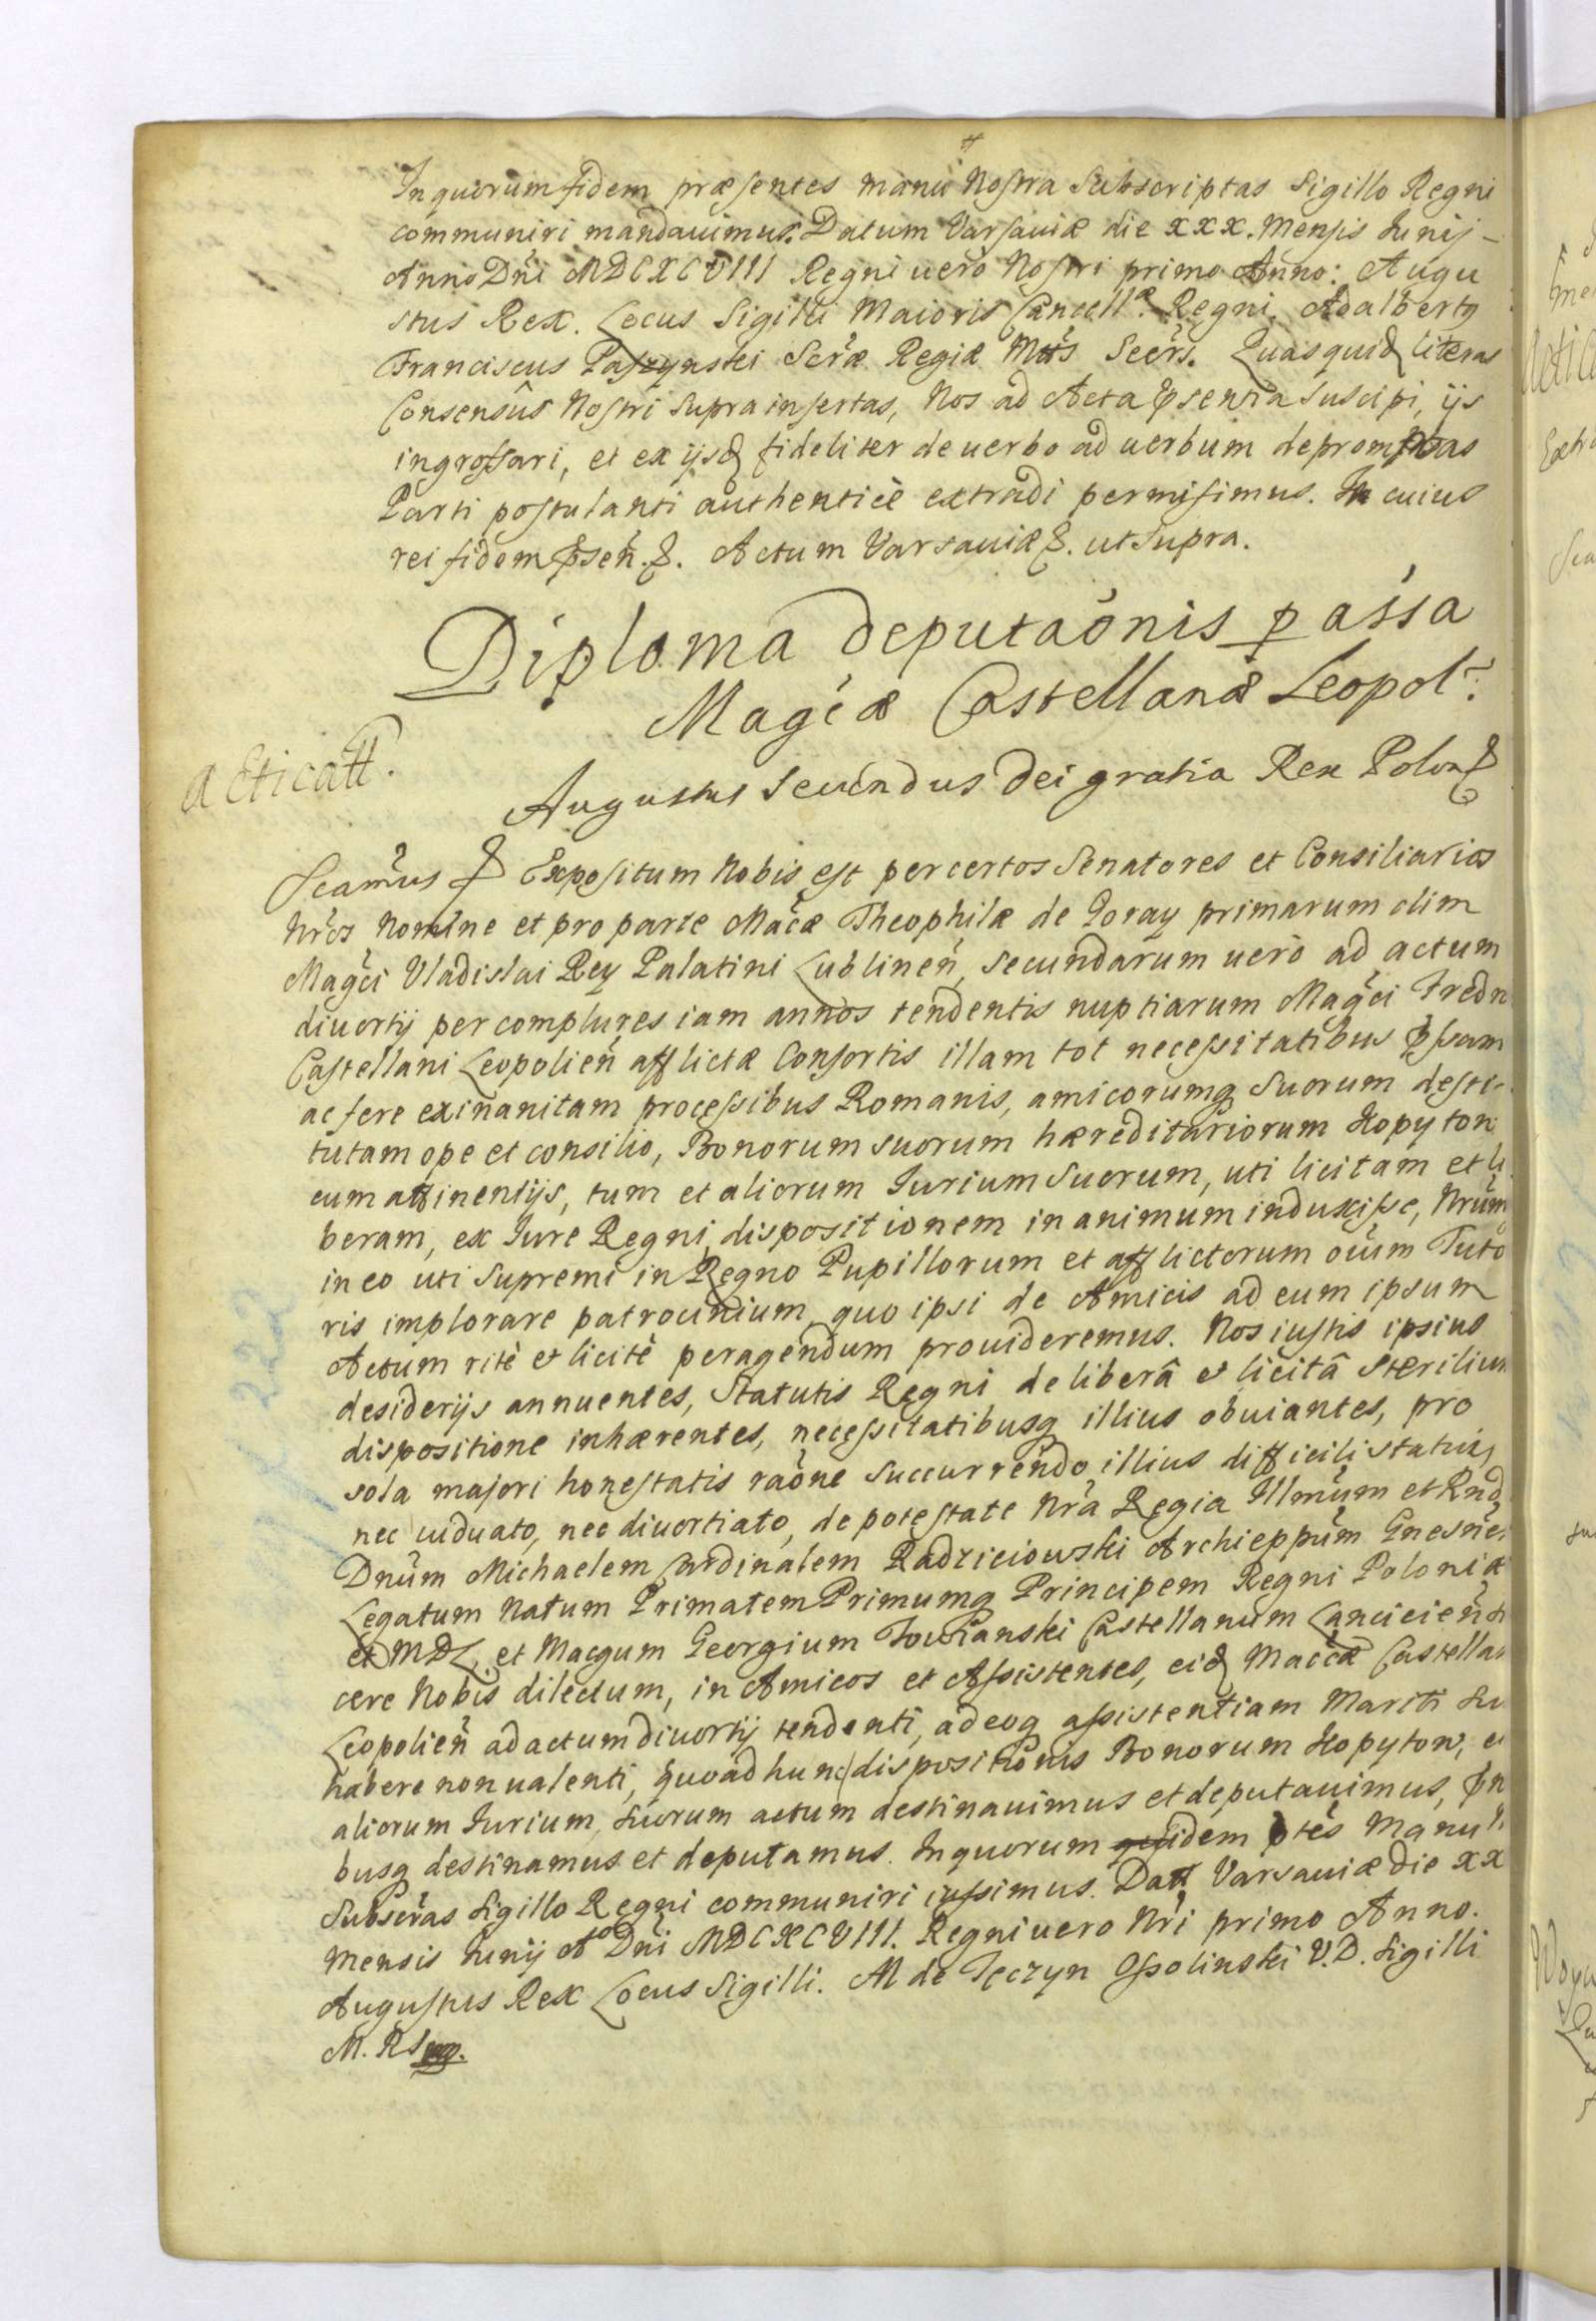 In quorum fidem præsentes manu Nostra Subscriptas Sigillo Regni
communiri mandauimus. Datum Varsauiæ die XXX. Mensis Junij -
Anno Dni MDCXCVIII Regni uero Nostri primo Anno: Augu
stus Rex. Locus Sigilli Maioris Cancellæ Regni. Adalbertq
Franciscus Paszynski Scræ Regiæ Mtis Secrs. Quasquid literas
Consensûs Nostri supra insertas, Nos ad Acta psentia suscipi, ijs
ingrossari, et ex ijsd fideliter de uerbo ad uerbum depromptas
Parti postulanti authenticè extradi permisimus. In cuius
rei fidem psen. &. Actum Varsauiæ &. ut supra.
Diploma deputaonis p assa
Magcæ Castellanæ Leopol:
acticatt.
Augustus Secundus Dei gratia Rex Polon &
Scamus & Expositum Nobis est per certos Senatores et Consiliarios
Nros Nomine et pro parte Macæ Theophilæ de Goray primarum olim
Magci Vladislai Rey Palatini Lublinen, secundarum uerò ad actum
diuortij per complures iam annos tendentis nuptiarum Magci Fredn
Castellani Leopolien afflictæ Consortis illam tot necessitatibus pssam
ac fere exinanitam processibus Romanis, amicorumq Suorum desti-
tutam ope et consilio, Bonorum suorum hæreditariorum Kopyton
cum attinentijs, tum et aliorum Jurium Suorum, uti licitam et li
beram, ex Jure Regni, dispositionem in animum induxisse, Nrum
in eo uti Supremi in Regno Pupillorum et afflictorum oium Tuto
ris implorare patrocinium, quo ipsi de Amicis ad eum ipsum
Actum ritè et licitè peragendum prouideremus. Nos iustis ipsius
desiderijs annuentes, Statutis Regni de liberâ et licitâ sterilium
dispositione inhærentes, necessitatibusq illius obuiantes, pro
sola majori honestatis raone succurrendo illius difficili statui,
nec uiduato, nec diuortiato, de potestate Nra Regia Illmum et Rnd
Dnum Michaelem Cardinalem Radzieiowski Archieppum Gnesne.
Legatum Natum Primatem Primumq Principem Regni Poloniæ
et MDL, et Macgum Georgium Towianski Castellanum Lancicien
cere Nobis dilectum, in Amicos et Assistentes, eid Maccæ Castellan
Leopolien ad actum diuortij tendenti, adeoq assistentiam Mariti Su
habere non ualenti, quoad hunc dispositionis Bonorum Kopyton, et
aliorum Jurium, Suorum actum destinauimus et deputauimus, pn
busq destinamus et deputamus. In quorum fidem ptes Manu N.
Subscras Sigillo Regni communiri iussimus. Datt Varsauiæ die XX
Mensis Junij Ao Dni MDCXCVIII. Regni uero Nri primo Anno.
Augustus Rex Locus Sigilli. M de Teczyn Ossolinski V.D. Sigilli
M. RS mp.